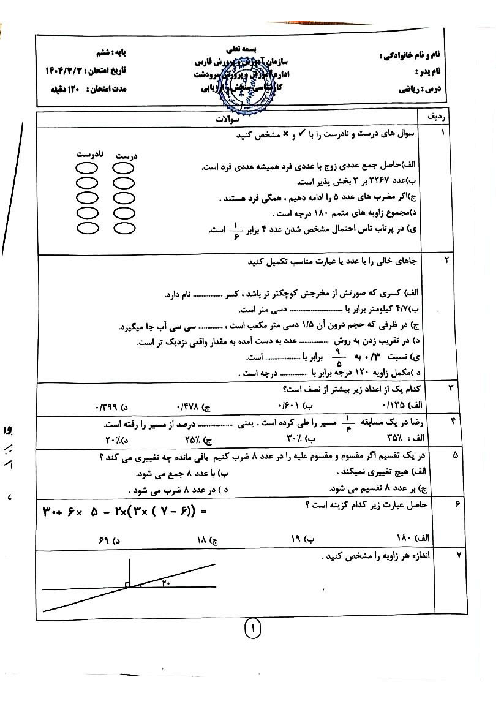 بسمه تعالی
نام و نام خانوادگی :
نام پدر :
درس : ریاضی
سازمان آموزش و پرورش فارس
اداره آموزش و پرورش مرودشت
کارشناسی سنجش و ارزیابی
پایه : ششم
تاریخ امتحان : ۱۴۰۴/۳/۲
مدت امتحان : ۱۲۰ دقیقه
ردیف سوالات
۱ سوال های درست و نادرست را با ✓ و × مشخص کنید
درست نادرست
الف)حاصل جمع عددی زوج با عددی فرد همیشه عددی فرد است.
ب)عدد ۳۲۶۷ بر ۳ بخش پذیر است.
ج)اگر مضرب های عدد ۵ را ادامه دهیم ، همگی فرد هستند .
د)مجموع زاویه های متمم ۱۸۰ درجه است .
ی) در پرتاب تاس احتمال مشخص شدن عدد ۴ برابر ۱/۶ است.
۲ جاهای خالی را با عدد یا عبارت مناسب تکمیل کنید
الف) کسری که صورتش از مخرجش کوچکتر باشد ، کسر ............ نام دارد.
ب)۴/۷ کیلومتر برابر با ........................ دسی متر است.
ج) در ظرفی که حجم درون آن ۱/۵ دسی متر مکعب است ، ............ سی سی آب جا میگیرد.
د) در تقریب زدن به روش ............... عدد به دست آمده به مقدار واقعی نزدیک تر است.
ی) نسبت ۰/۳ به ۹/۵ برابر با ............... است.
د )مکمل زاویه ۱۲۰ درجه برابر با ............ درجه است .
۳ کدام یک از اعداد زیر بیشتر از نصف است؟
الف) ۰/۱۳۵ ب) ۰/۶۰۱ ج) ۰/۴۷۸ د) ۰/۳۹۹
۴ رضا در یک مسابقه ۱/۴ مسیر را طی کرده است . یعنی ............... درصد از مسیر را رفته است.
الف : ۳۵٪ ب) ۳۰٪ ج) ۲۵٪ د)۲۰٪
۵ در یک تقسیم اگر مقسوم و مقسوم علیه را در عدد ۸ ضرب کنیم باقی مانده چه تغییری می کند ؟
الف) هیچ تغییری نمیکند . ب) با عدد ۸ جمع می شود.
ج) بر عدد ۸ تقسیم می شود. د ) در عدد ۸ ضرب می شود .
۶ حاصل عبارت زیر کدام گزینه است ؟
۳۰÷ ۶× ۵ − ۲×(۳× ( ۷ − ۶)) =
الف) ۱۸۰ ب) ۱۹ ج) ۱۸ د) ۶۹
۷ اندازه هر زاویه را مشخص کنید .
۲۰
۱